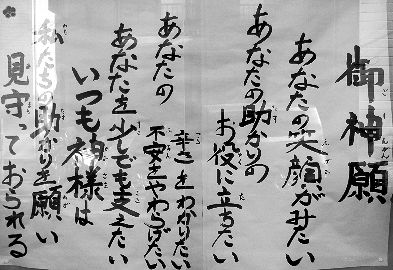 御神願
あなたの笑顔がみたい
あなたの助かりの
お役に立ちたい
あなたの
辛さをわかりたい
不安をやわらげたい
あなたを少しでも支えたい
いつも神様は
私たちの助かりを願い
見守っておられる